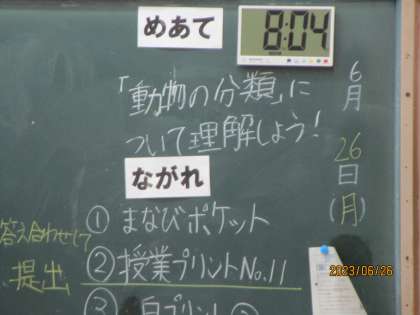 めあて
8:04
「動物の分類」に
ついて理解しよう!
6月26日(月)
ながれ
① まなびポケット
答え合わせして
提出
② 授業プリントNo.11
プリント
2023/06/26